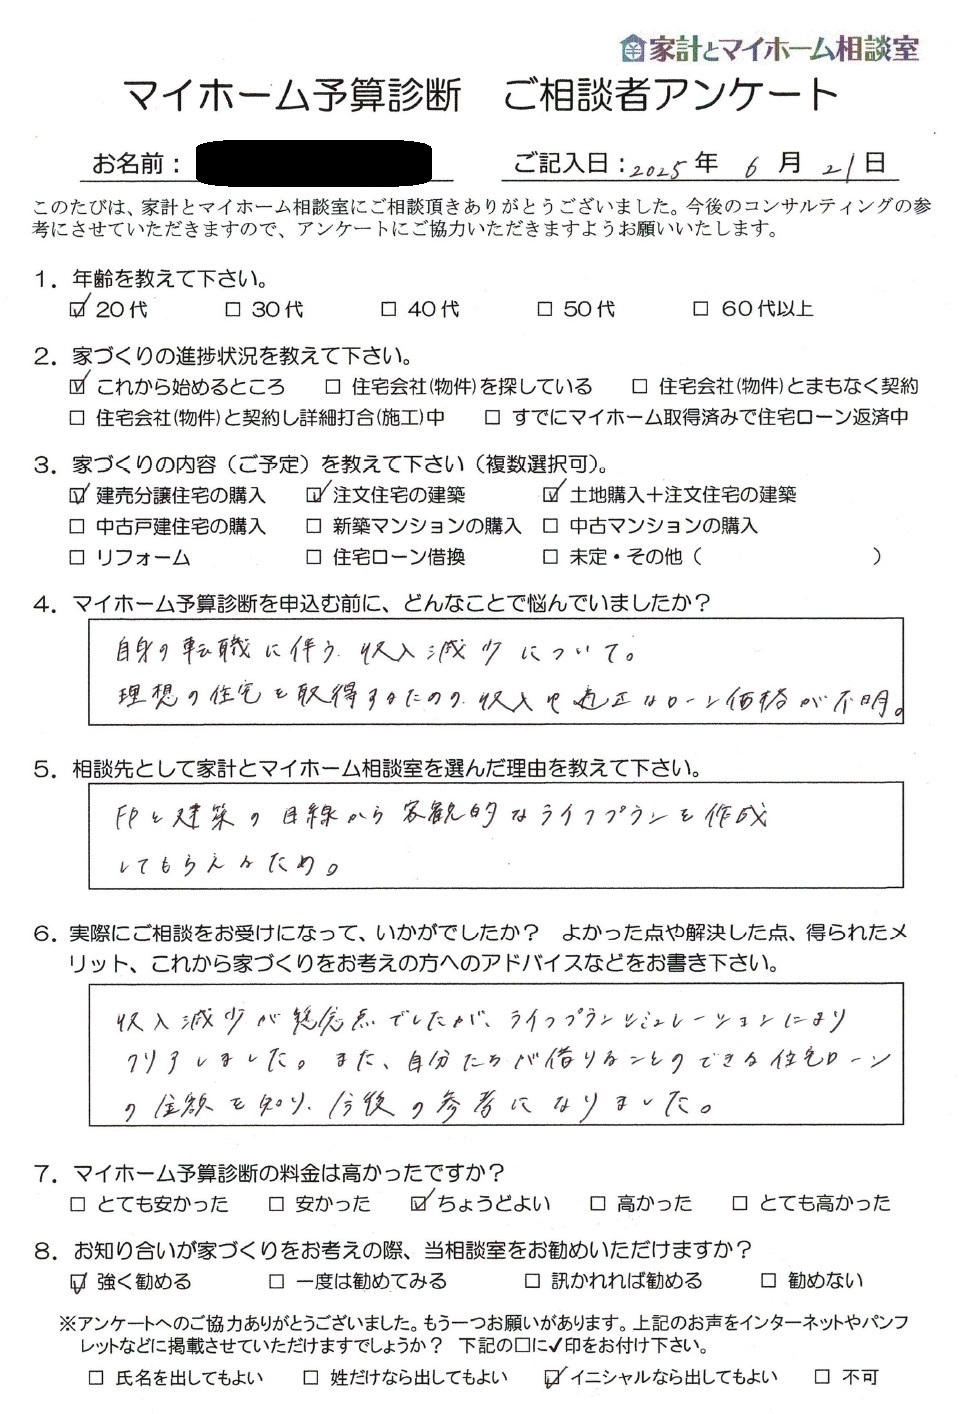 家計とマイホーム相談室
マイホーム予算診断 ご相談者アンケート
お名前： ご記入日：2025年 6 月 21日
このたびは、家計とマイホーム相談室にご相談頂きありがとうございました。今後のコンサルティングの参
考にさせていただきますので、アンケートにご協力いただきますようお願いいたします。
1．年齢を教えて下さい。
☑ 20代 □ 30代 □ 40代 □ 50代 □ 60代以上
2．家づくりの進捗状況を教えて下さい。
☑ これから始めるところ □ 住宅会社(物件)を探している □ 住宅会社(物件)とまもなく契約
□ 住宅会社(物件)と契約し詳細打合(施工)中 □ すでにマイホーム取得済みで住宅ローン返済中
3．家づくりの内容（ご予定）を教えて下さい（複数選択可）。
☑ 建売分譲住宅の購入 ☑ 注文住宅の建築 ☑ 土地購入＋注文住宅の建築
□ 中古戸建住宅の購入 □ 新築マンションの購入 □ 中古マンションの購入
□ リフォーム □ 住宅ローン借換 □ 未定・その他（ ）
4．マイホーム予算診断を申込む前に、どんなことで悩んでいましたか？
自身の転職に伴う、収入減少について。
理想の住宅を取得するための、収入や適正なローン価格が不明。
5．相談先として家計とマイホーム相談室を選んだ理由を教えて下さい。
FPと建築の目線から客観的なライフプランを作成
してもらえるため。
6．実際にご相談をお受けになって、いかがでしたか？ よかった点や解決した点、得られたメ
リット、これから家づくりをお考えの方へのアドバイスなどをお書き下さい。
収入減少が懸念点でしたが、ライフプランシミュレーションにより
クリアしました。また、自分たちが借りることのできる住宅ローン
の金額を知り、今後の参考になりました。
7．マイホーム予算診断の料金は高かったですか？
□ とても安かった □ 安かった ☑ ちょうどよい □ 高かった □ とても高かった
8．お知り合いが家づくりをお考えの際、当相談室をお勧めいただけますか？
☑ 強く勧める □ 一度は勧めてみる □ 訊かれれば勧める □ 勧めない
※アンケートへのご協力ありがとうございました。もう一つお願いがあります。上記のお声をインターネットやパンフ
レットなどに掲載させていただけますでしょうか？ 下記の□に✓印をお付け下さい。
□ 氏名を出してもよい □ 姓だけなら出してもよい ☑ イニシャルなら出してもよい □ 不可